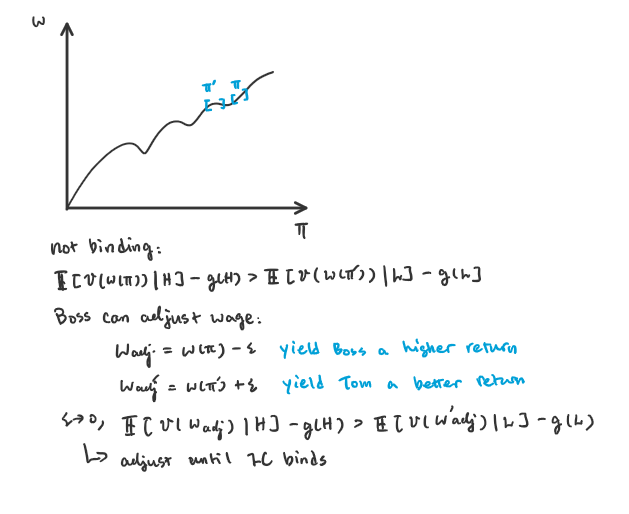 w
π' π
[ ] [ ]
π
not binding:
𝔼[v(w(π))|H] - g(H) > 𝔼[v(w(π'))|L] - g(L]
Boss can adjust wage:
Wadj. = w(π) - ε yield Boss a higher return
Wadj' = w(π') + ε yield Tom a better return
ε→0, 𝔼[v(Wadj)|H] - g(H) > 𝔼[v(W'adj)|L] - g(L)
↳ adjust until IC binds